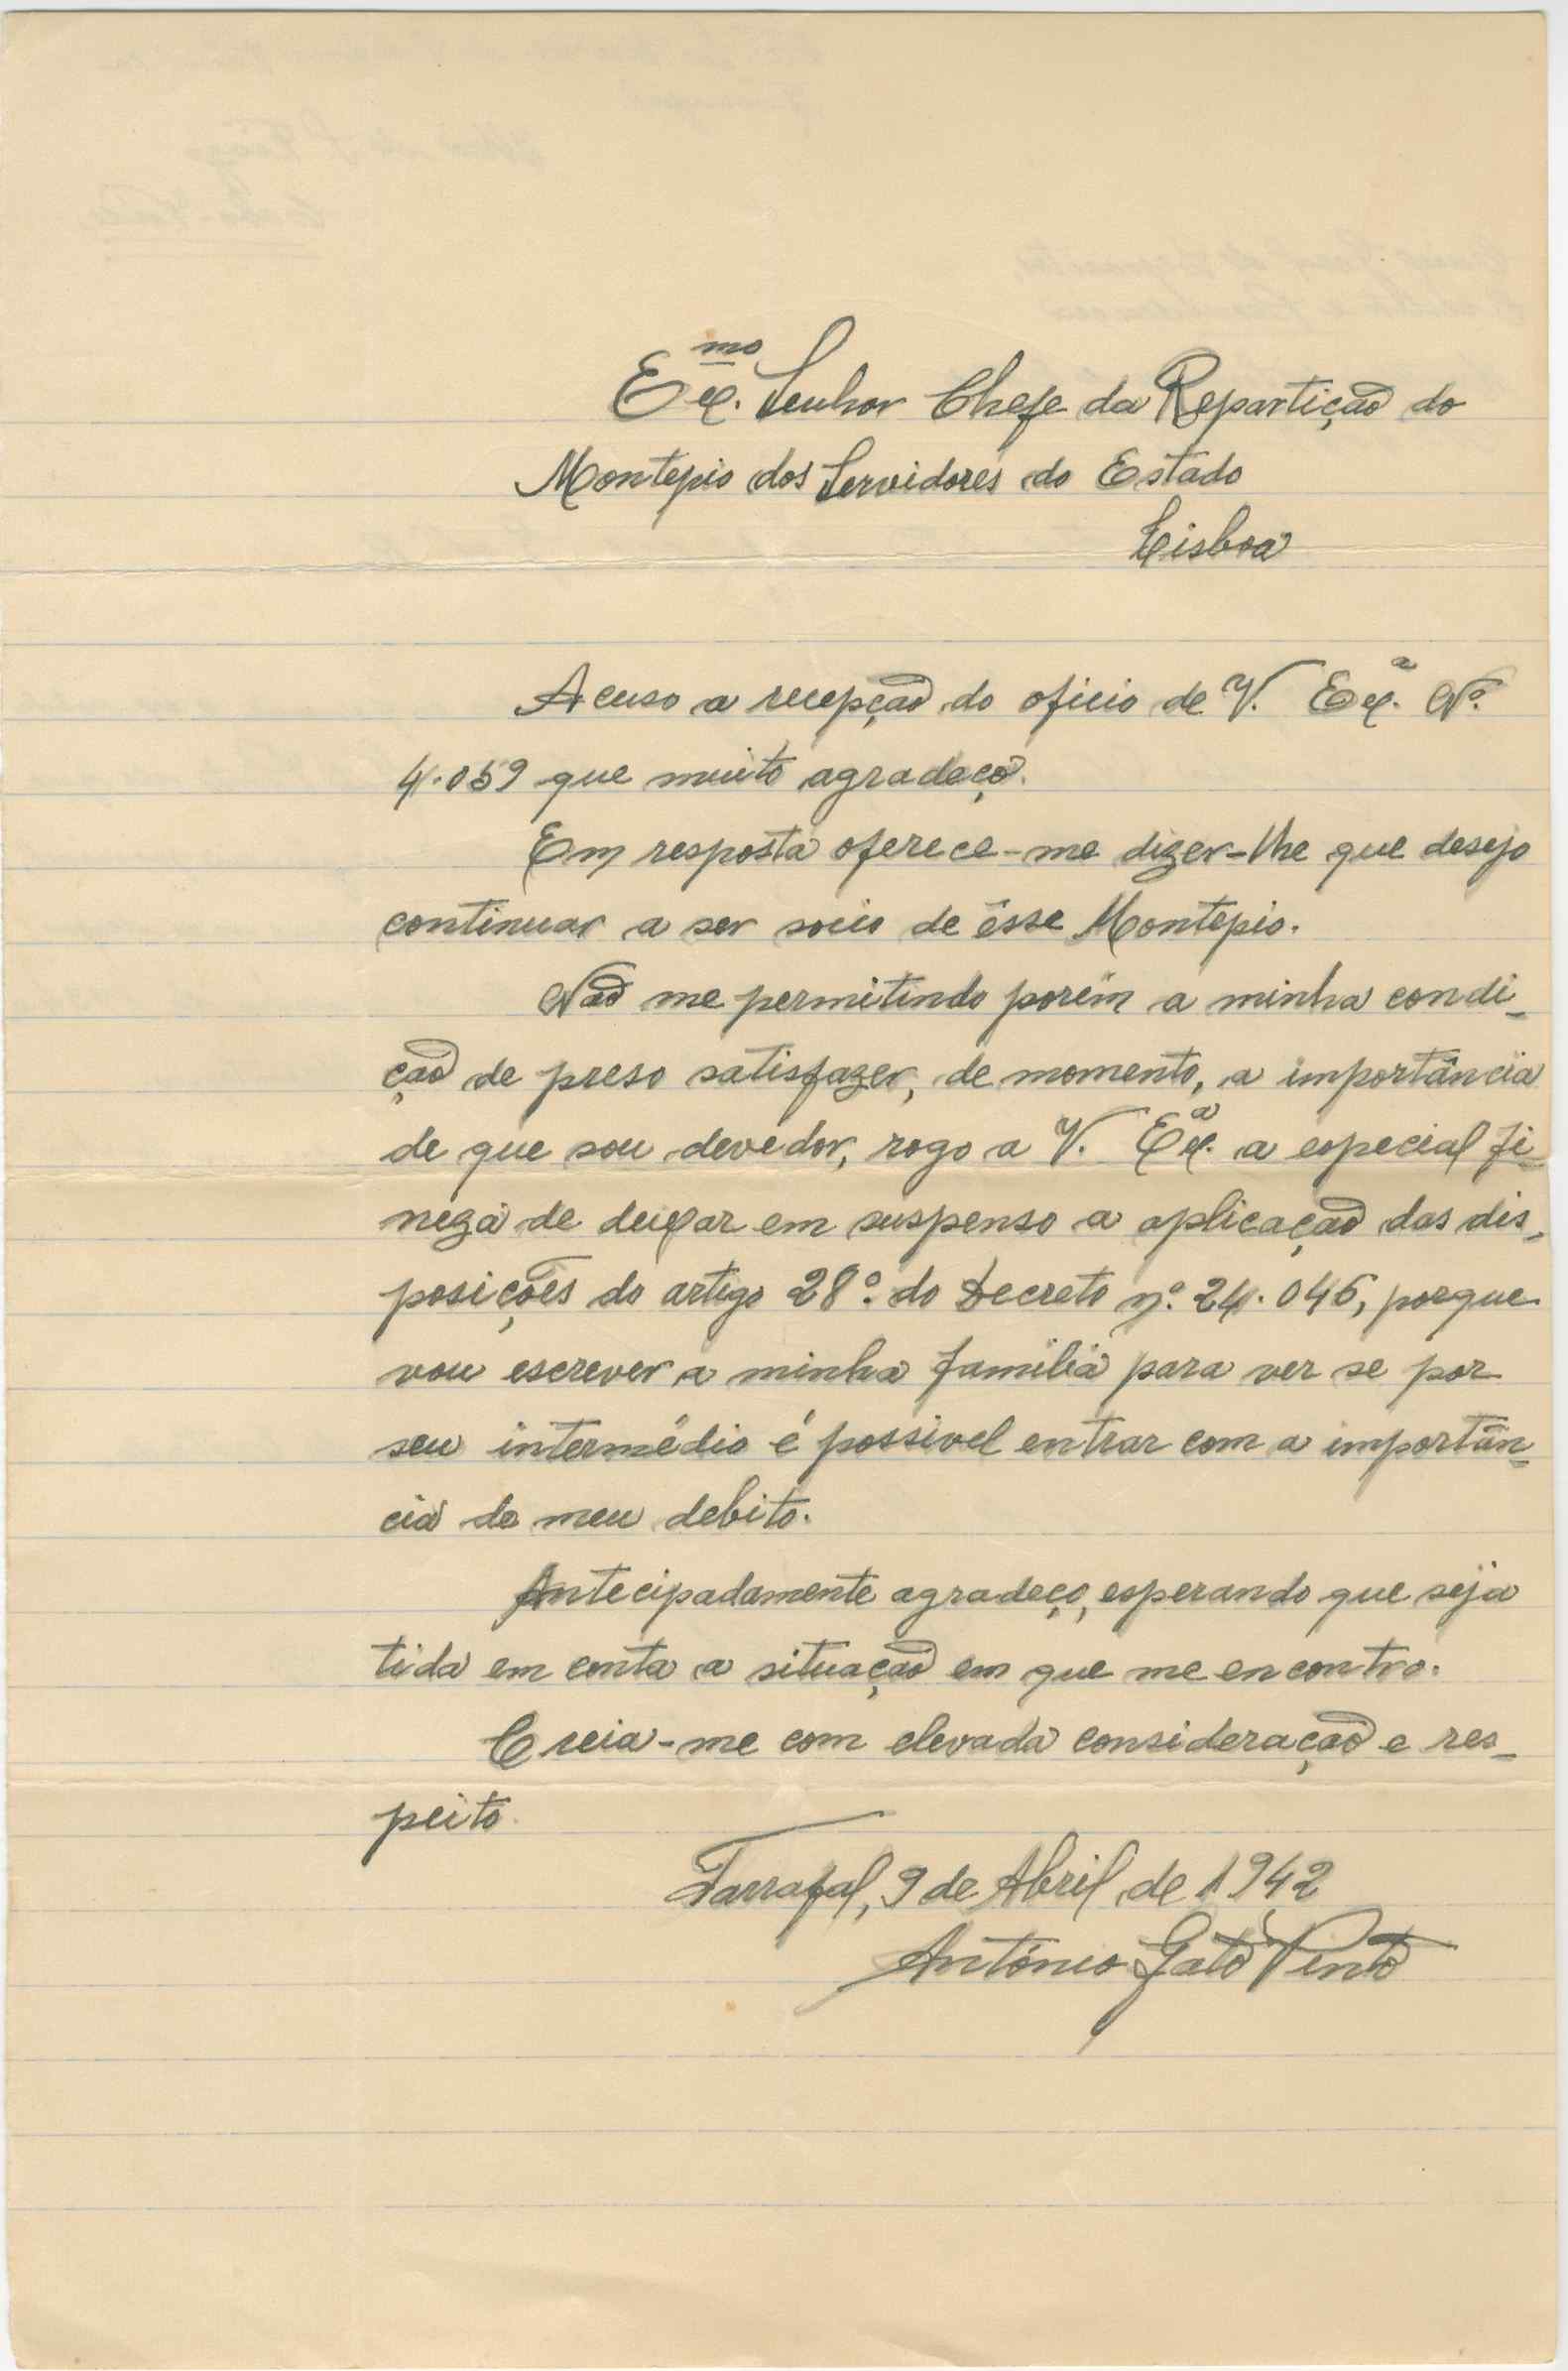 Ex.mo Senhor Chefe da Repartição do
Montepio dos Servidores do Estado
Lisboa
Acuso a recepção do oficio de V. Ex.ª Nº.
4.059 que muito agradeço.
Em resposta oferece-me dizer-lhe que desejo
continuar a ser socio de êsse Montepio.
Não me permitindo porêm a minha condi-
ção de preso satisfazer, de momento, a importância
de que sou devedor, rogo a V. Ex.ª a especial fi-
neza de deixar em suspenso a aplicação das dis-
posições do artigo 28º. do Decreto nº. 24.046, porque
vou escrever a minha familia para ver se por
seu intermédio é possivel entrar com a importân-
cia do meu debito.
Antecipadamente agradeço, esperando que seja
tida em conta a situação em que me encontro.
Creia-me com elevada consideração e res-
peito
Tarrafal, 9 de Abril de 1942
António Gato Pinto